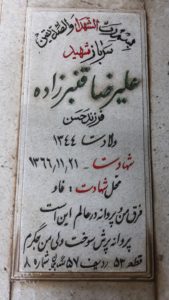 بسم رب الشهدا والصدیقین
سرباز شهید
علیرضا قنبرزاده
فرزند حسن
ولادت ۱۳۴۴
شهادت ۱۳۶۶,۱۱,۲۱
محل شهادت : فاو
فرق من و پروانه در عالم این است
پروانه پرش سوخت ولی من جگرم
قطعه ۵۳ ردیف ۵۷ شماره ۸